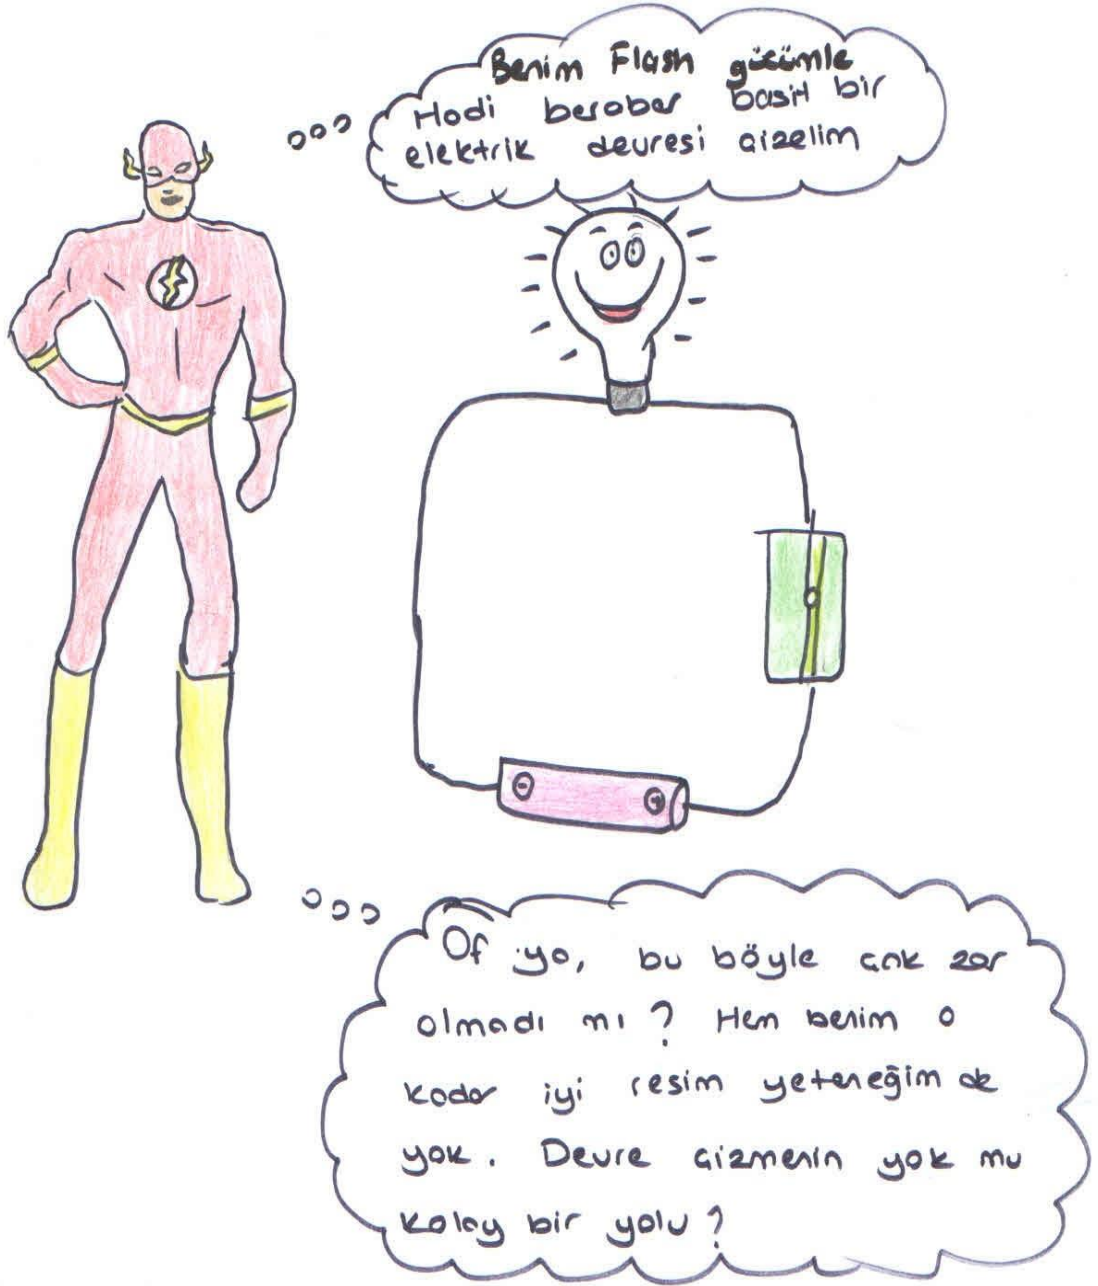 Benim Flash gücümle
Hadi beraber basit bir
elektrik devresi çizelim
- +
Of ya, bu böyle çok zor
olmadı mı? Hem benim o
kadar iyi resim yeteneğim de
yok. Devre çizmenin yok mu
kolay bir yolu?